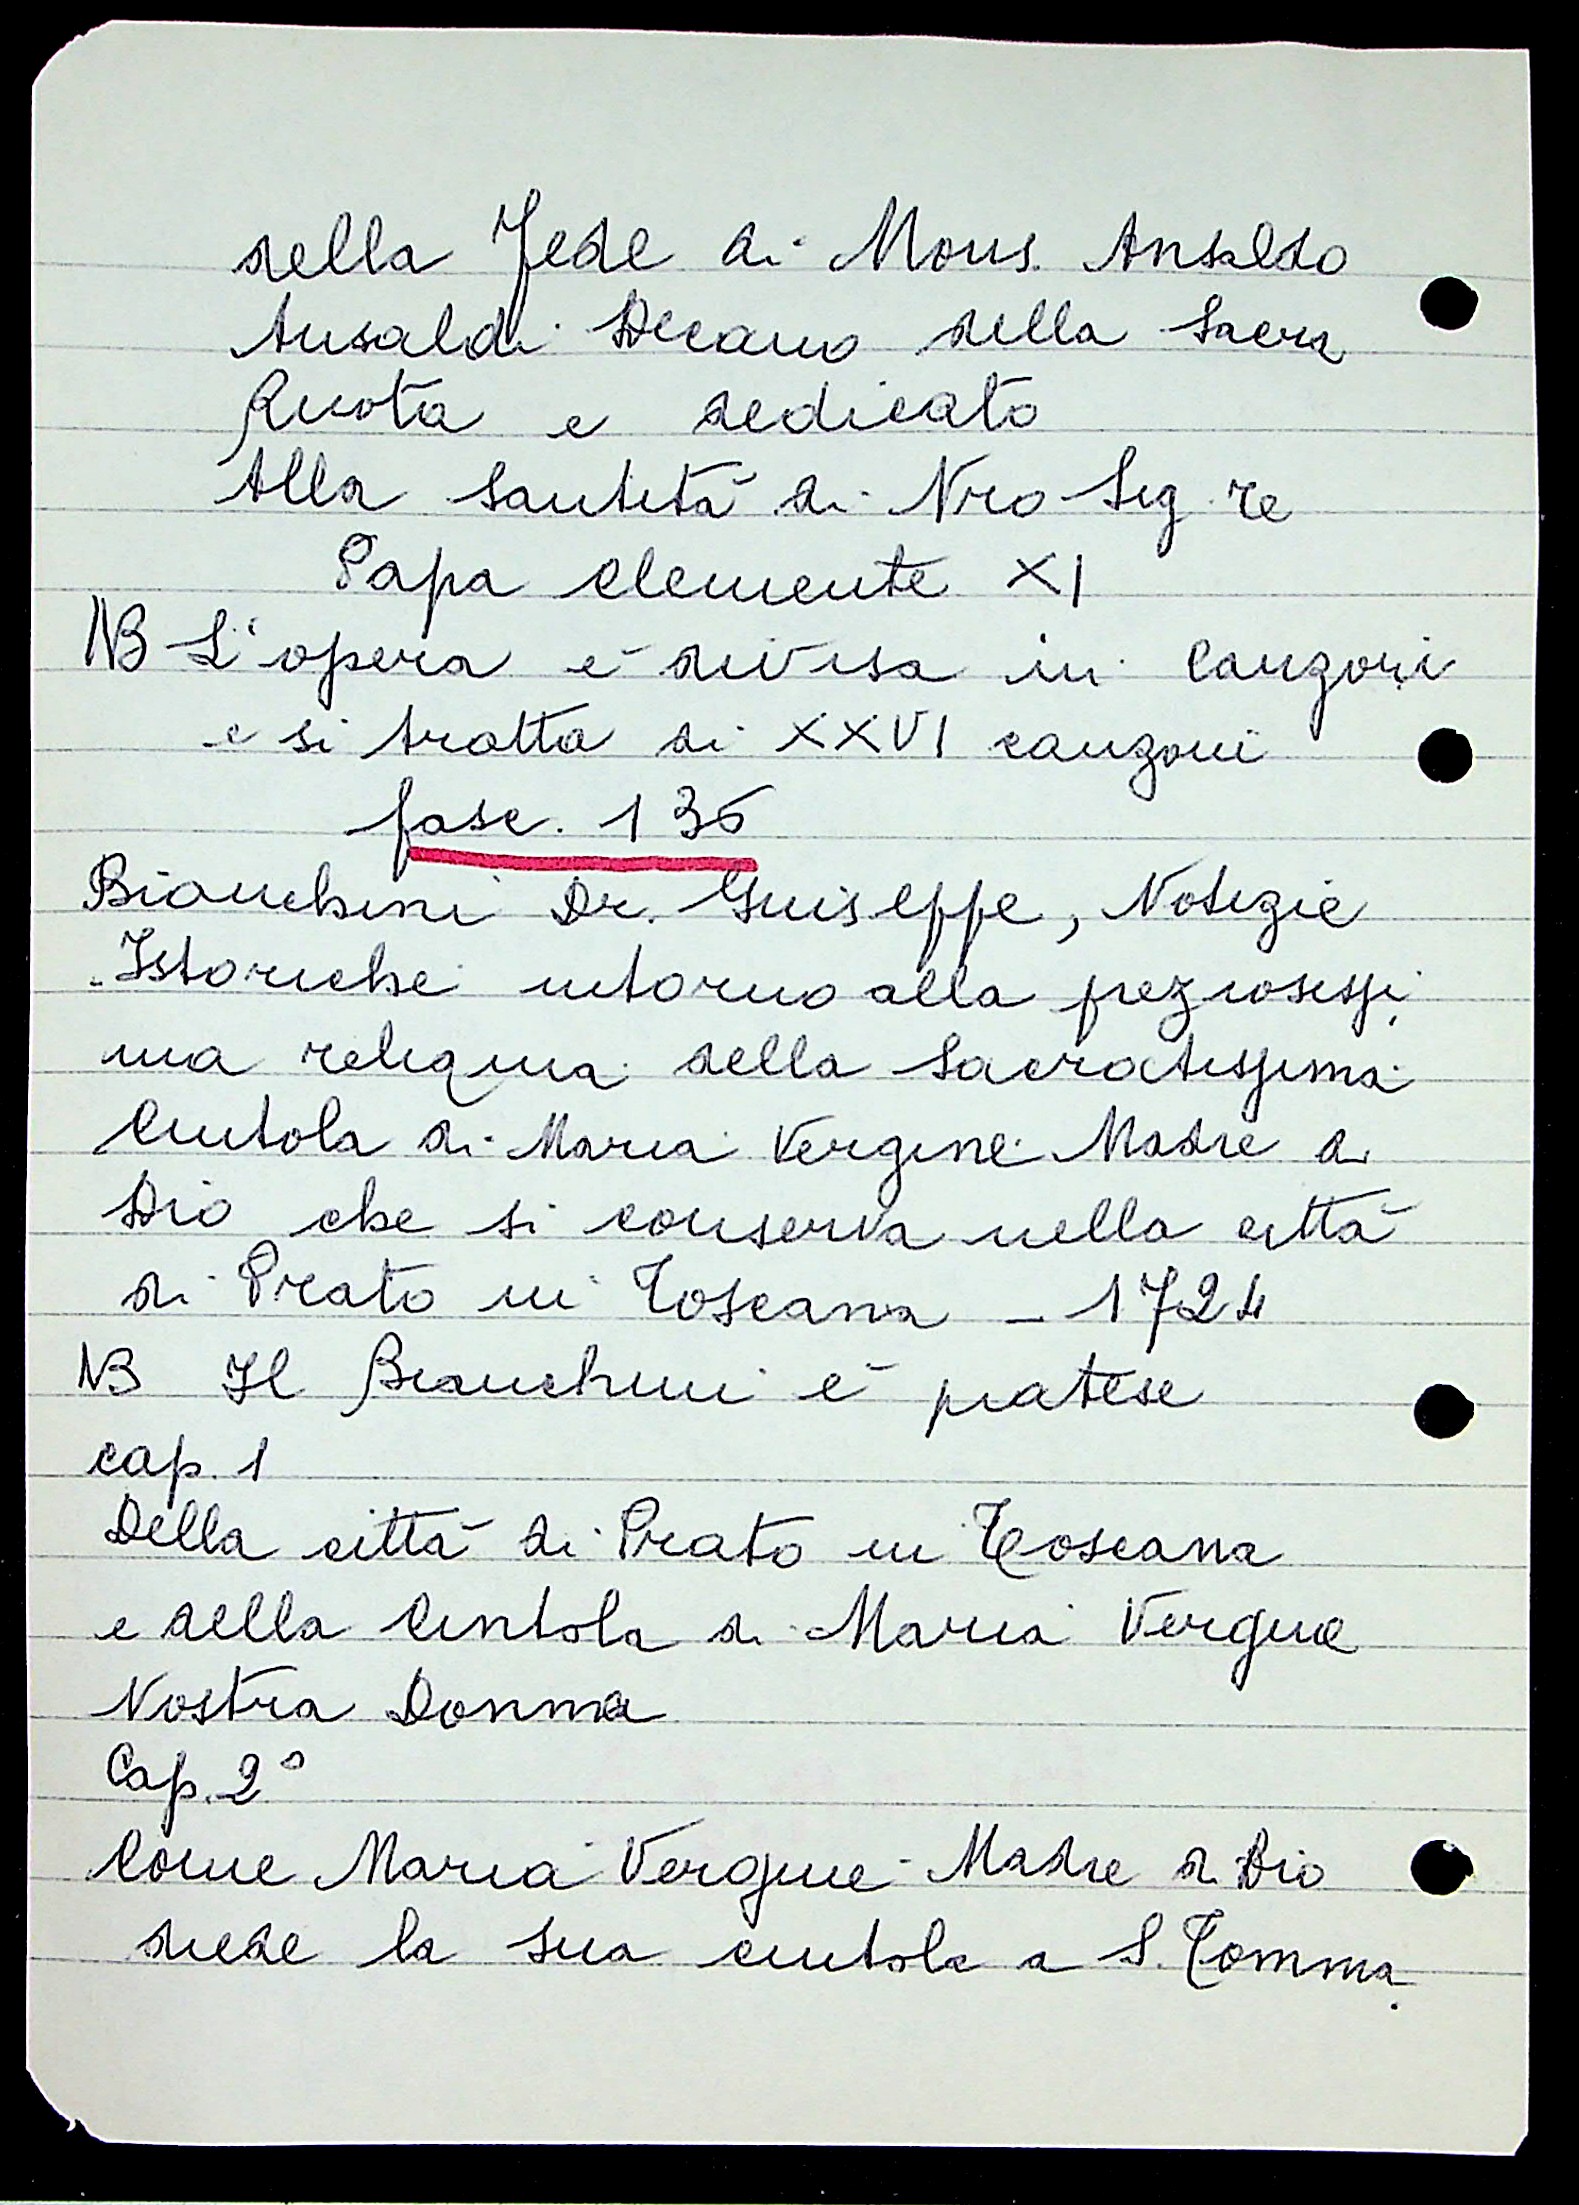 della Fede di Mons. Ansaldo
Ansaldi Decano della Sacra
Ruota e dedicato
Alla Santità di Nro Sig.re
Papa Clemente XI
NB L'opera è divisa in Canzoni
e si tratta di XXVI canzoni
fasc. 136
Bianchini Dr. Guiseppe, Notizie
Istoriche intorno alla preziosissi
ma reliquia della Sacratissima
Cintola di Maria Vergine Madre di
Dio che si conserva nella città
di Prato in Toscana – 1724
NB Il Bianchini è pratese
cap. 1
Della città di Prato in Toscana
e della Cintola di Maria Vergine
Nostra Donna
Cap. 2°
Come Maria Vergine Madre di Dio
diede la sua cintola a S. Tomma